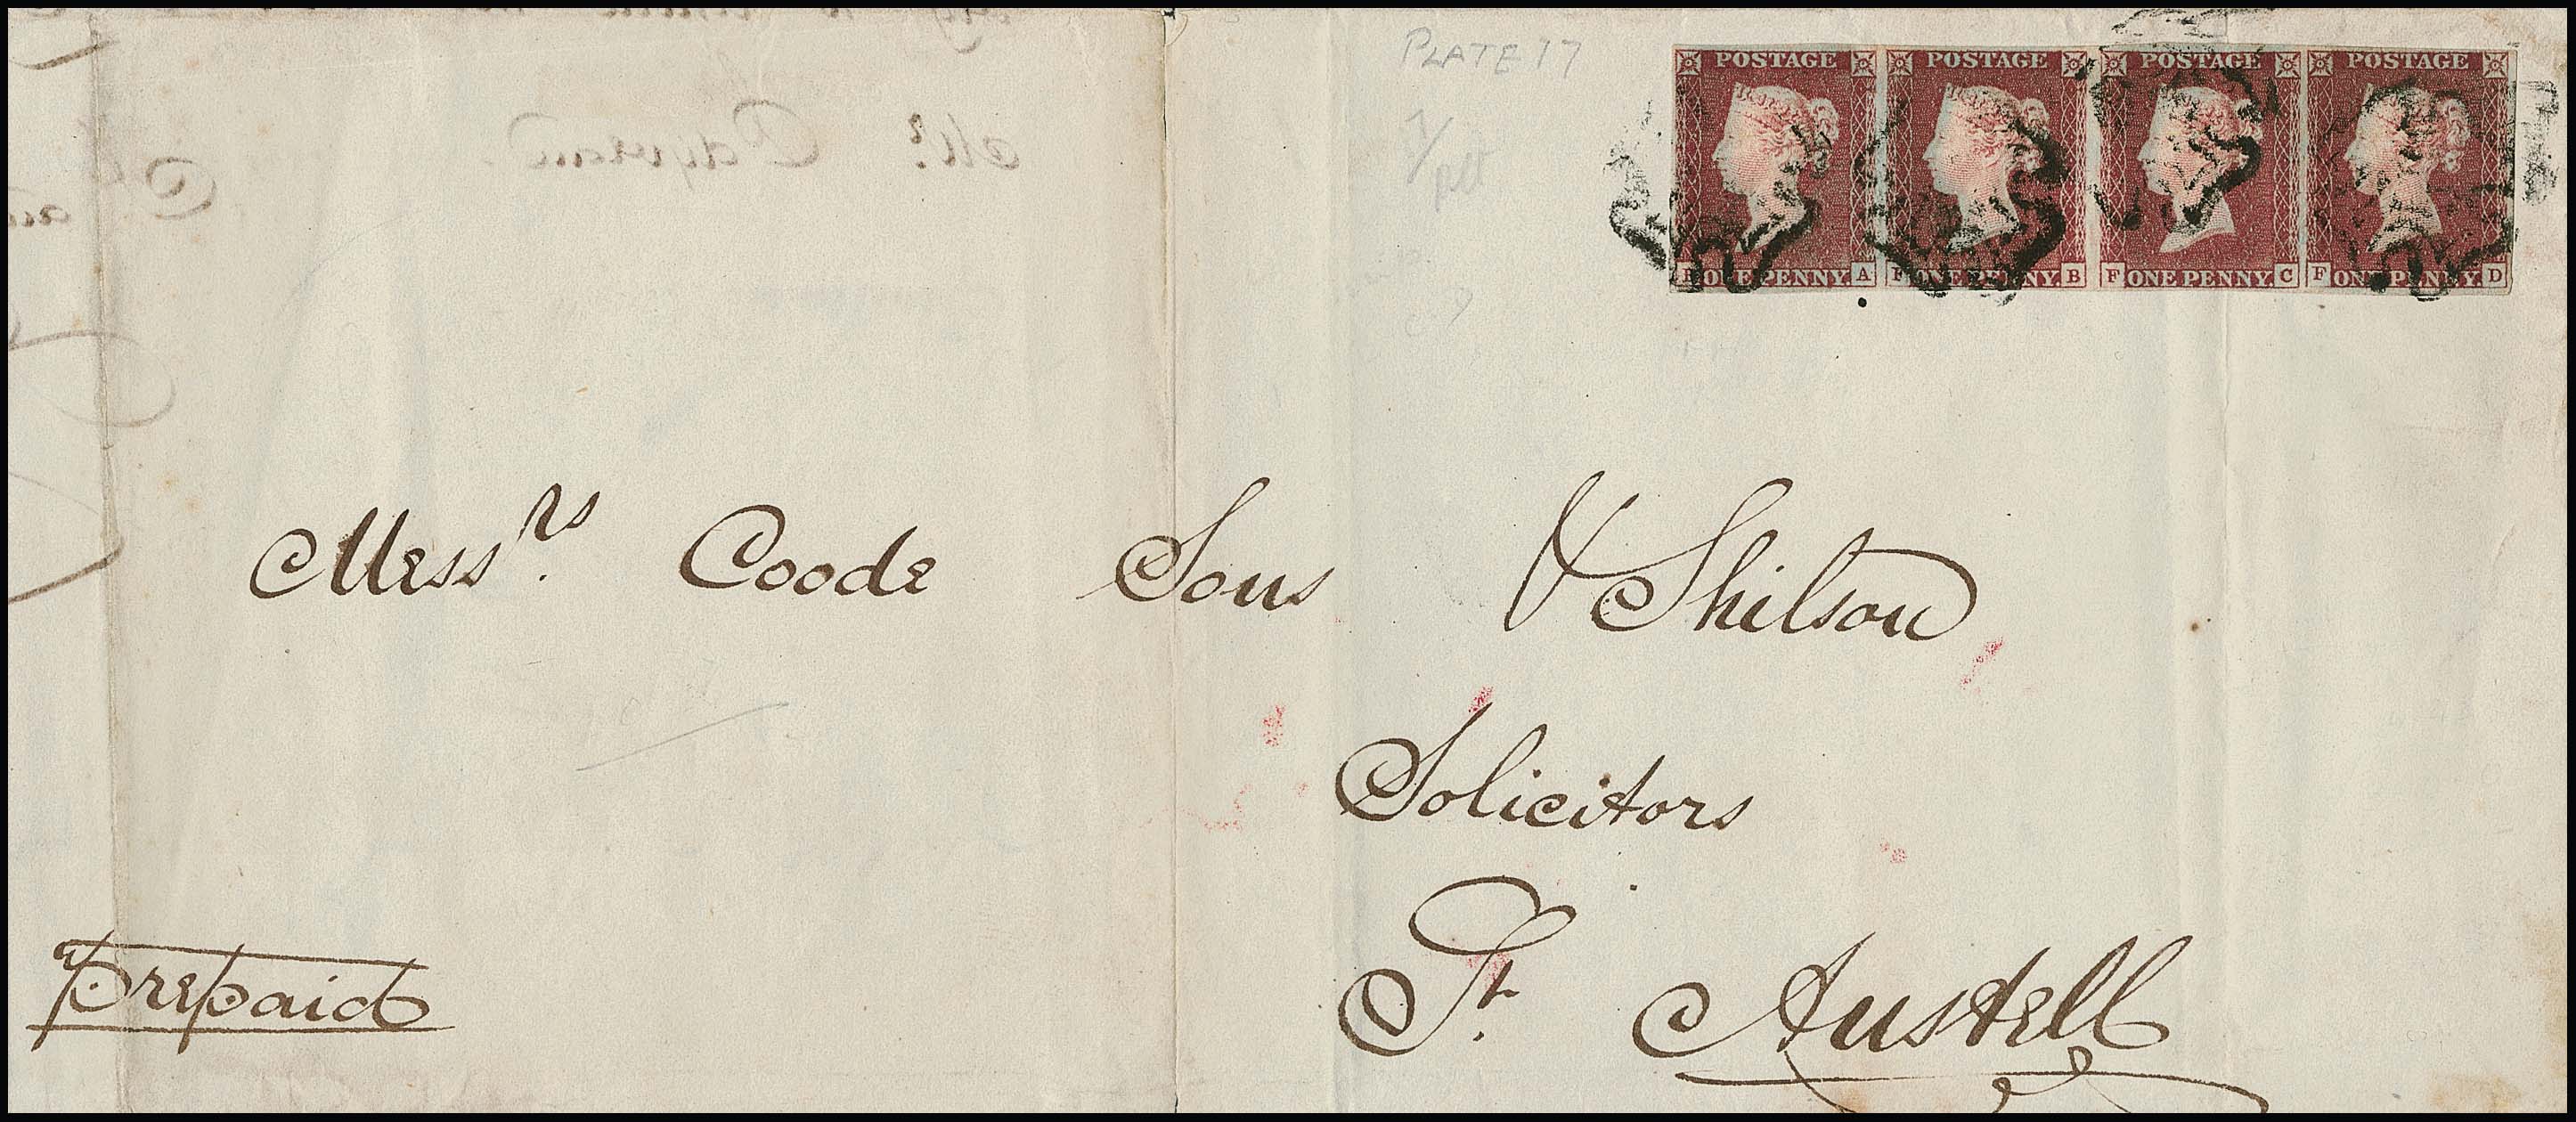 PLATE 17
POSTAGE POSTAGE POSTAGE POSTAGE
ONE PENNY A F ONE PENNY B F ONE PENNY C F ONE PENNY D
Mr.
Messrs. Coode Sons & Shilson
Solicitors
St. Austell
prepaid